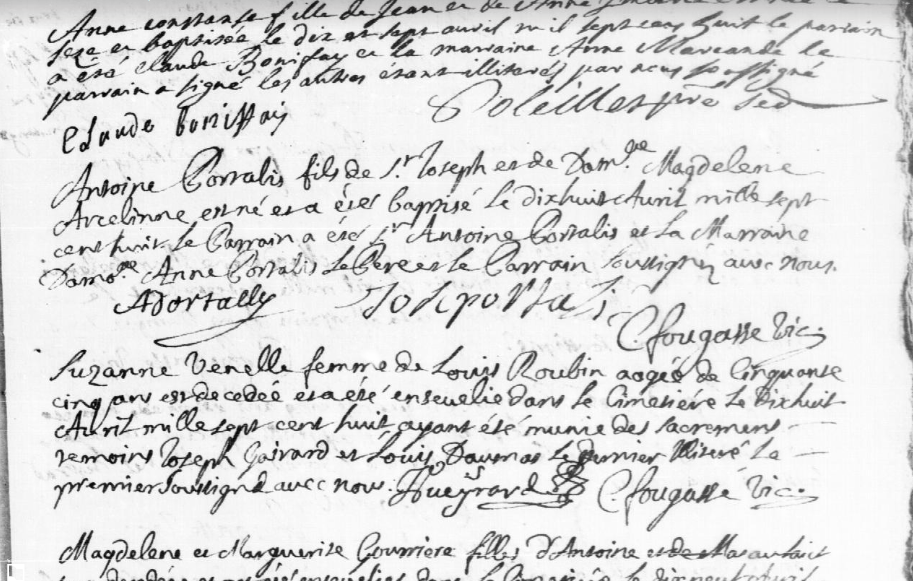 Anne constanse fille de Jean et de Anne
née et baptisée le dix et sept avril mil sept cens huit le parrain
a été Claude Boniffay et la marraine Anne Marcande le
parrain a signé les autres étant illiterés par nous soussigné
Claude boniffay
Soleillet ptre sed
Antoine Portalis fils de Sr. Joseph et de Damlle Magdelene
Arcelinne, est né et a étés baptisé le dixhuit Avril mille sept
cent huit le Parrain a étés Sr Antoine Portalis et La Marraine
Damolle Anne Portalis Le Pere et le Parrain soussignés avec nous.
APortally
Jos portalis
C. fougasse Vic.
Suzanne Venelle femme de Louis Roubin aageé de Cinquante
cinq ans est decedée et a été ensevelie dans le Cimetiére Le Dixhuit
Avril mille sept cent huit ayant été munie des sacremens
temoins Joseph Gairard et Louis Daumas le dernier illiteré le
premier soussigné avec nous. JGueyrard
C. fougasse Vic.
Magdelene et Marguerite Courriere filles d'Antoine et de